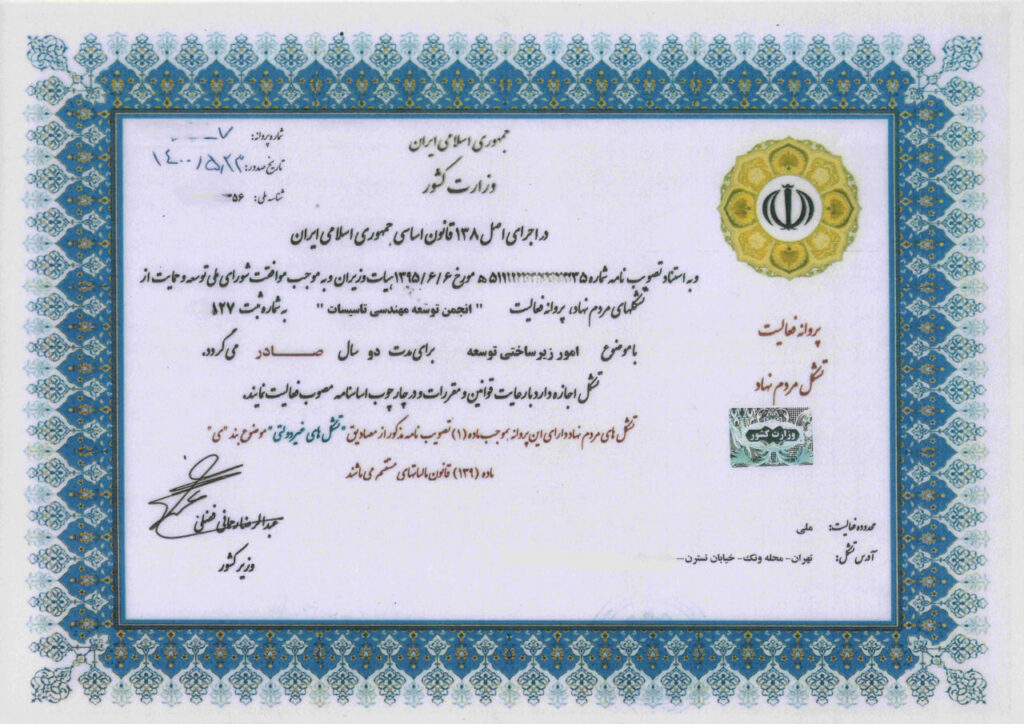 جمهوری اسلامی ایران
وزارت کشور
شماره پروانه: ۷
تاریخ صدور: ۱۴۰۰/۵/۲۳
شناسه ملی: ۵۶
در اجرای اصل ۱۳۸ قانون اساسی جمهوری اسلامی ایران
و به استناد تصویب نامه شماره مورخ ۱۳۹۵/۶/۶ هیات وزیران و به موجب موافقت شورای ملی توسعه و حمایت از
تشکلهای مردم نهاد، پروانه فعالیت " انجمن توسعه مهندسی تاسیسات " به شماره ثبت ۸۲۷
با موضوع امور زیرساختی توسعه برای مدت دو سال صادر می گردد.
تشکل اجازه دارد با رعایت قوانین و مقررات و در چارچوب اساسنامه مصوب فعالیت نمایند.
تشکل های مردم نهاد دارای این پروانه بموجب ماده (۱) تصویب نامه مذکور از مصادیق "تشکل های غیردولتی" موضوع بند "ی"
ماده (۱۳۹) قانون مالیاتهای مستقیم می باشند
پروانه فعالیت
تشکل مردم نهاد
وزارت کشور
عبدالرضا رحمانی فضلی
وزیر کشور
محدوده فعالیت: ملی
آدرس تشکل: تهران- محله ونک- خیابان نسترن-